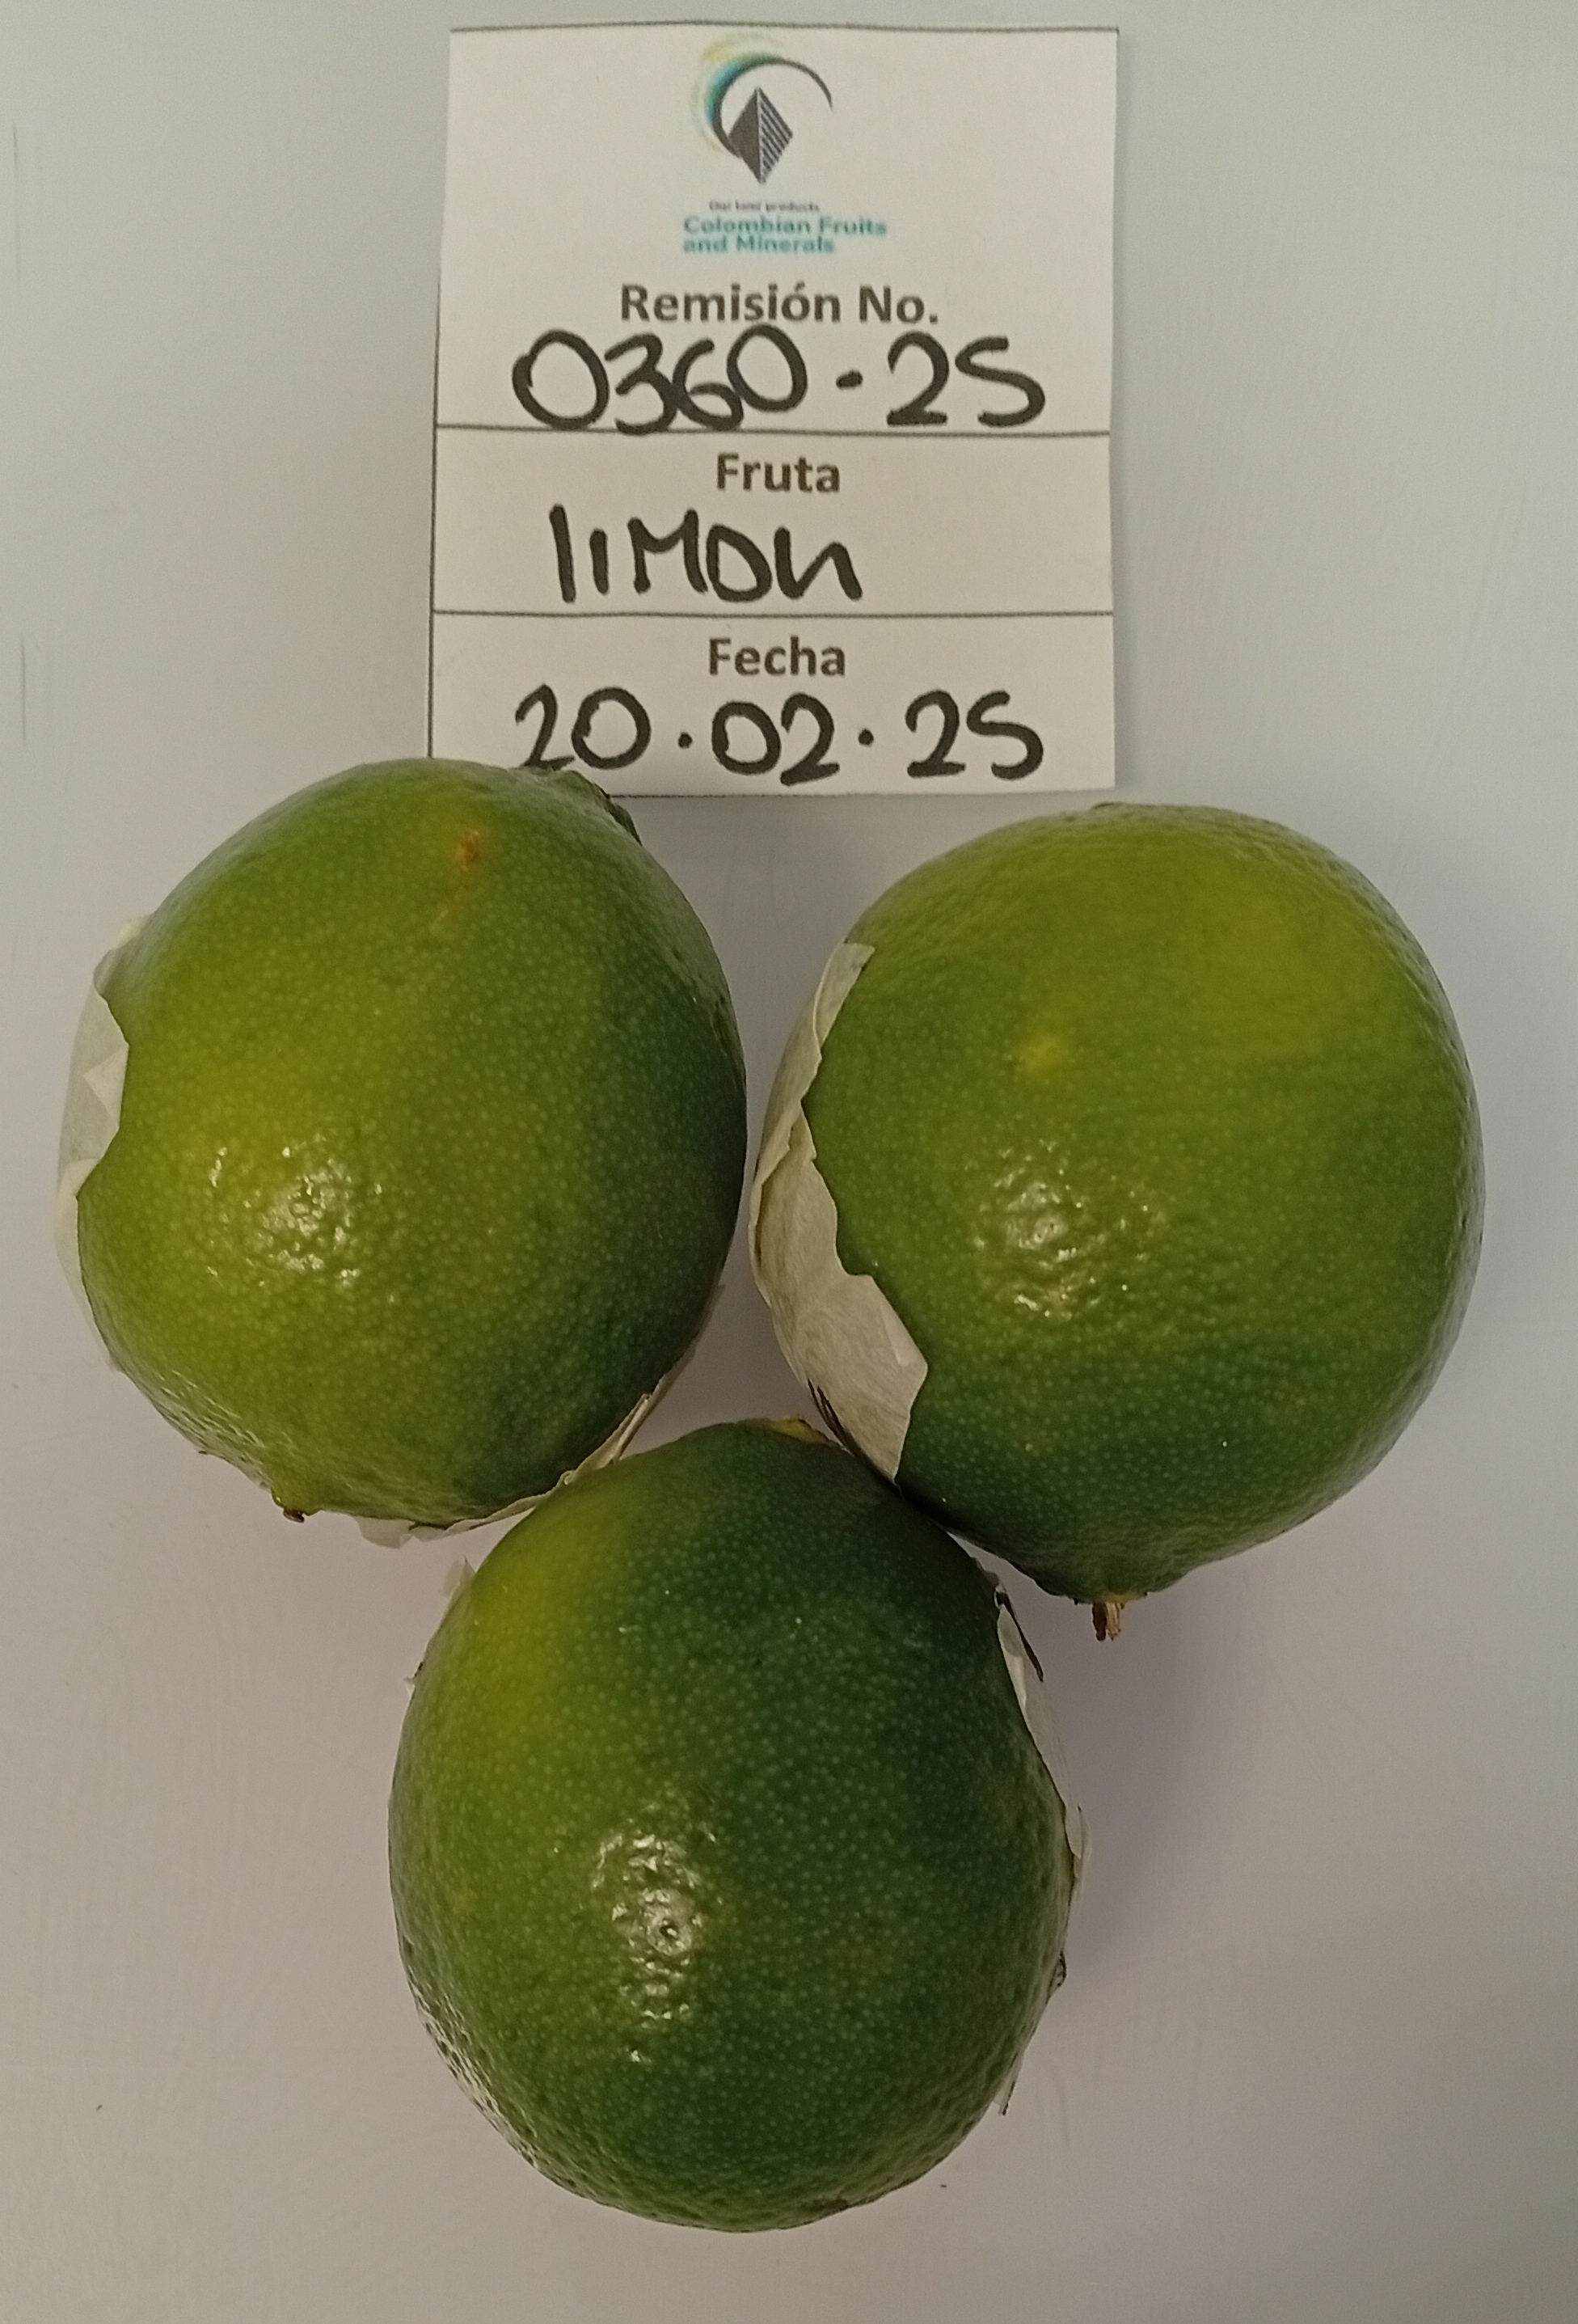 Our land products
Colombian Fruits
and Minerals
Remisión No.
0360-25
Fruta
lIMON
Fecha
20.02.25